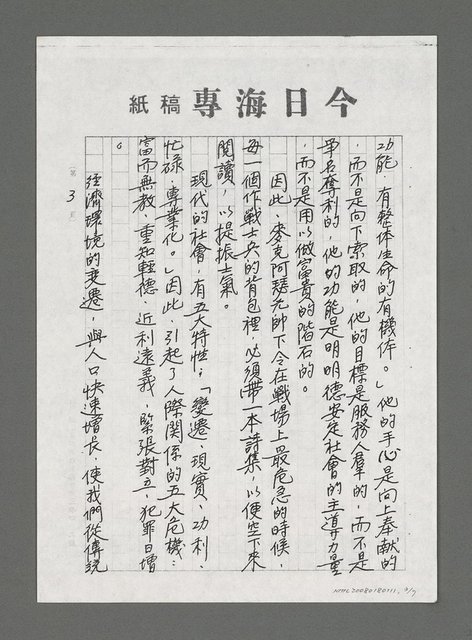 今日海專稿紙
功能，有整体生命的有機体。」他的手心是向上奉献的
，而不是向下索取的，他的目標是服務人羣的，而不是
爭名奪利的，他的功能是明明德安定社會的主導力量
，而不是用以做富貴的階石的。
因此，麥克阿瑟元帥下令在戰場上最危急的時候，
每一個作戰士兵的背包裡，必須帶一本詩集，以便空下來
閱讀，以提振士氣。
現代的社會，有五大特性：「變遷、現實、功利、
忙碌、專業化。」因此，引起了人際關係的五大危機：
富而無教、重知輕德、近利遠義、緊張對立、犯罪日增
。
經濟環境的变遷，與人口快速增長，使我們從傳統
第 3 頁
NMTL20080180111, 3/7